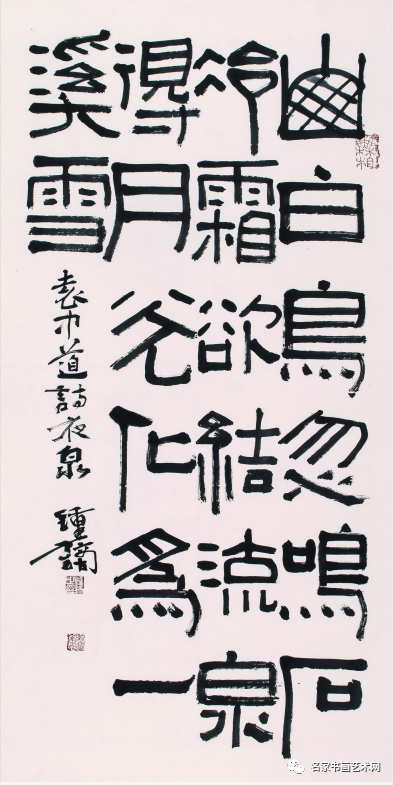 山白鳥忽鳴石
冷霜欲結流泉
得月光化爲一
溪雪
袁中道詩夜泉
名家书画艺术网